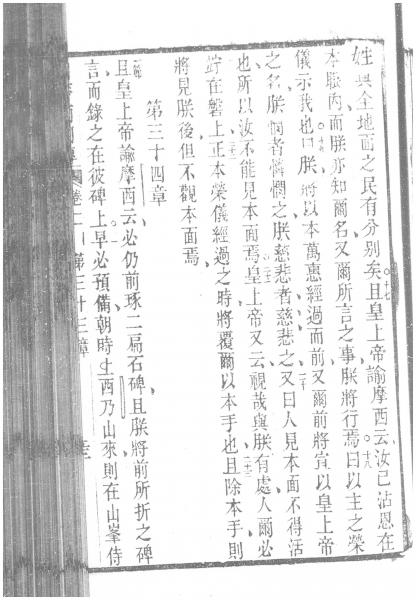 姓與全地面之民有分别矣。十七且皇上帝諭摩西云汝已沾恩在
本眼內而朕亦知爾名又爾所言之事朕將行焉。十八曰以主之榮
儀示我也。十九曰朕將以本萬惠經過而前又爾前將宣以皇上帝
之名朕憫者憐憫之朕慈悲者慈悲之。二十又曰人見本面不得活
也所以汝不能見本面焉。二一皇上帝又云視哉與朕有處人爾必
竚在磐上。二二正本榮儀經過之時將覆爾以本手也。二三且除本手則
將見朕後但不觀本面焉
第三十四章
一節且皇上帝諭摩西云必仍前琢二扁石碑且朕將前所折之碑
言而錄之在彼碑上。早必預備朝時生西乃山來則在山峯侍
卷二 第三十三章